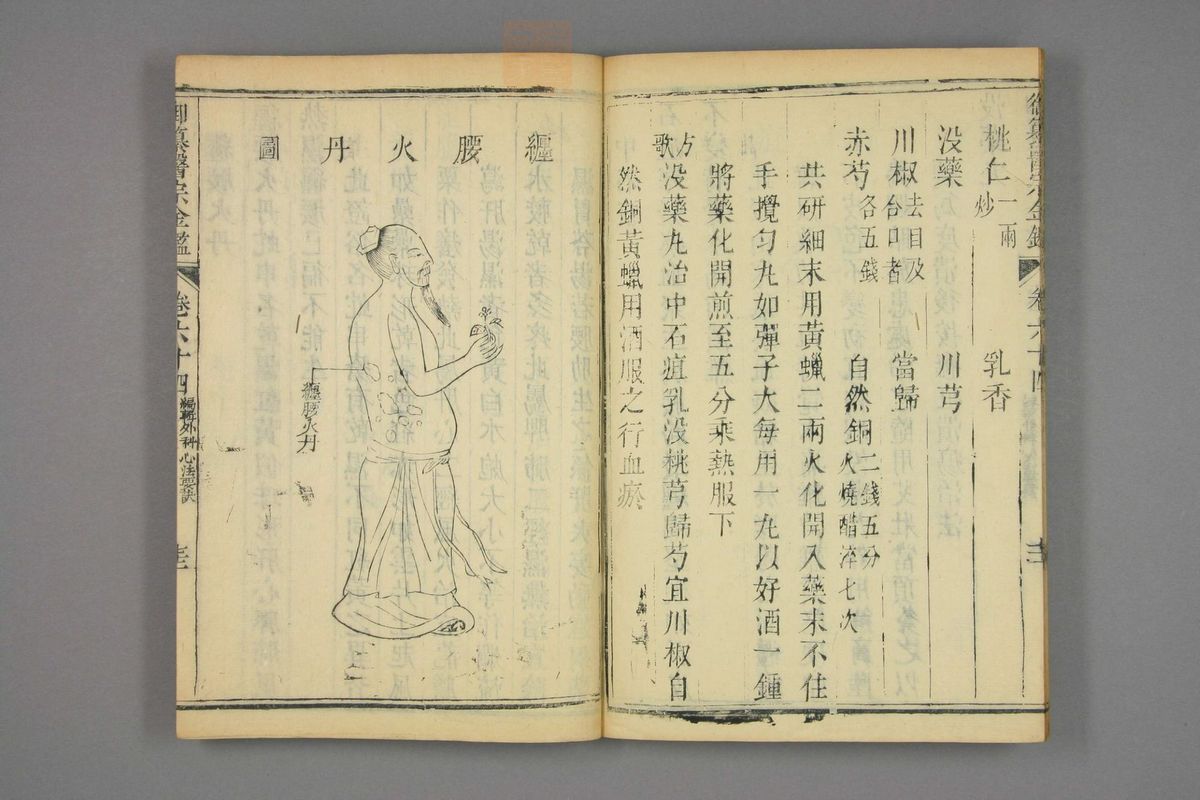 御纂醫宗金鑑
卷六十四
桃仁 一兩炒 乳香
沒藥 川芎
川椒 去目及合口者 當歸
赤芍 各五錢 自然銅 二錢五分火燒醋淬七次
共研細末用黃蠟二兩火化開入藥末不住
手攪勻丸如彈子大每用一丸以好酒一鍾
將藥化開煎至五分乘熱服下
方歌
沒藥丸治中石疽乳沒桃芎歸芍宜川椒自
然銅黃蠟用酒服之行血瘀
纏腰火丹圖
纏腰火丹
御纂醫宗金鑑
卷六十四
編輯外科心法要訣